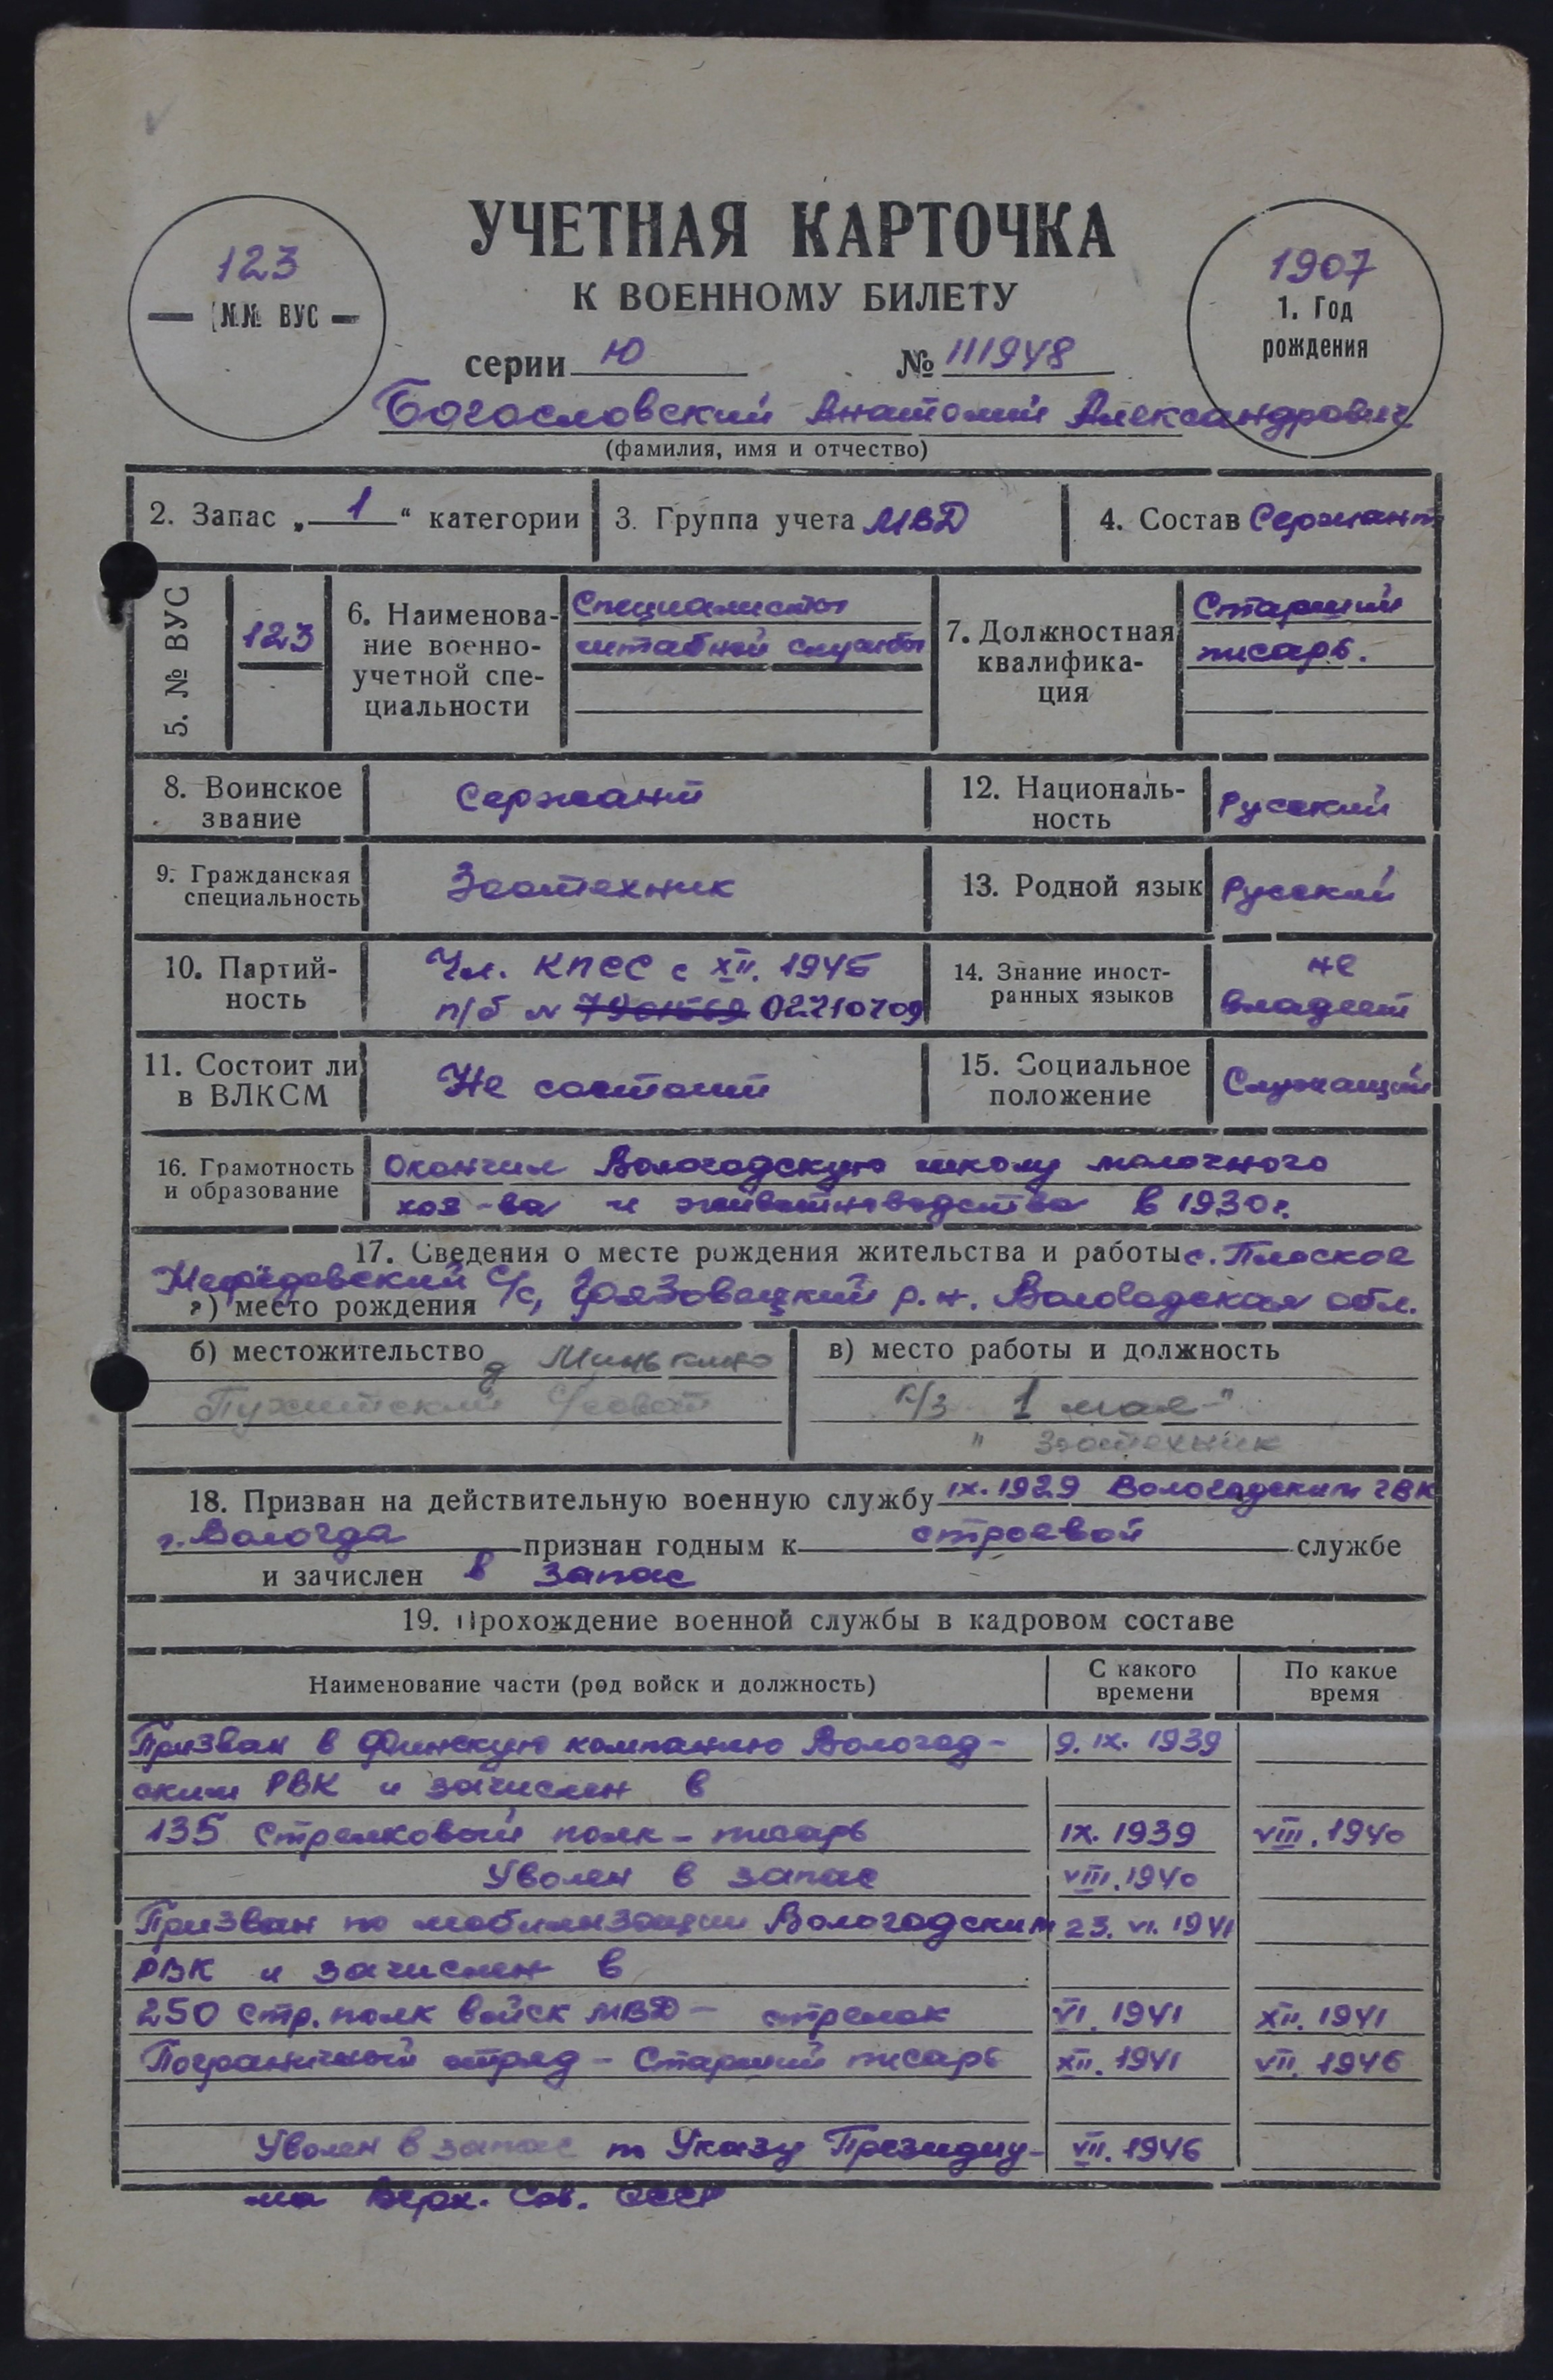 УЧЕТНАЯ КАРТОЧКА
К ВОЕННОМУ БИЛЕТУ
123
№№ ВУС
1907
1. Год
рождения
серии Ю № 111948
Богословский Анатолий Александрович
(фамилия, имя и отчество)
2. Запас „ 1 “ категории
3. Группа учета МВД
4. Состав Сержант
5. № ВУС
123
6. Наименова-
ние военно-
учетной спе-
циальности
Специалисты
штабной службы
7. Должностная
квалифика-
ция
Старший
писарь.
8. Воинское
звание
Сержант
12. Националь-
ность
Русский
9. Гражданская
специальность
Зоотехник
13. Родной язык
Русский
10. Партий-
ность
Чл. КПСС с XII. 1945
п/б № 02710709
14. Знание иност-
ранных языков
не
владеет
11. Состоит ли
в ВЛКСМ
Не состоит
15. Социальное
положение
Служащий
16. Грамотность
и образование
Окончил Вологодскую школу молочного
хоз-ва и животноводства в 1930 г.
17. Сведения о месте рождения жительства и работы с. Плоское
Нефёдовский с/с, Грязовецкий р.н. Вологодская обл.
а) место рождения
б) местожительство д Минькино
с/совет
в) место работы и должность
к/з 1 мая "
" Зоотехник
18. Призван на действительную военную службу IX. 1929 Вологодским ГВК
г. Вологда признан годным к строевой службе
и зачислен в запас
19. Прохождение военной службы в кадровом составе
Наименование части (род войск и должность)
С какого
времени
По какое
время
Призван в Финскую компанию Вологод- 9. IX. 1939
ским РВК и зачислен в
135 Стрелковый полк - писарь IX. 1939 VIII. 1940
Уволен в запас VIII. 1940
Призван по мобилизации Вологодским 23. VI. 1941
РВК и зачислен в
250 стр. полк войск МВД - стрелок VI. 1941 XII. 1941
Пограничный отряд - Старший писарь XII. 1941 VII. 1946
Уволен в запас по Указу Президиу- VII. 1946
ма Верх. Сов. СССР